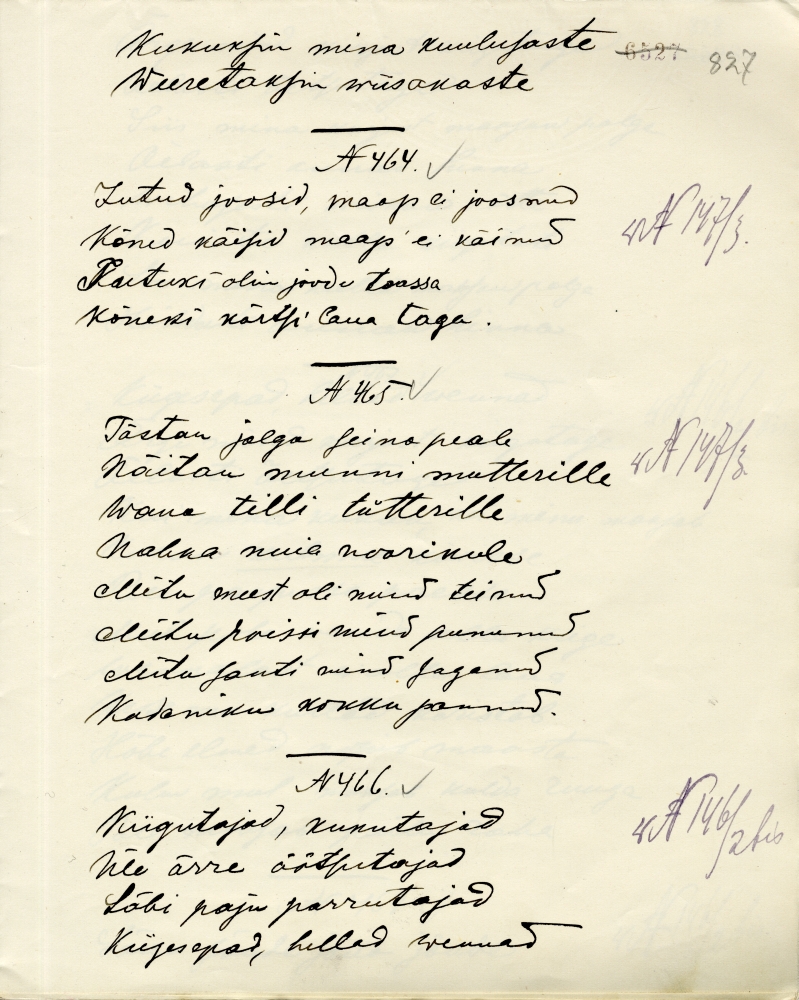 Kukuksin mina kuulusaste
Weeretaksin wiisakaste
6527 827
N 464.
Jutud joosid, maap ei joosnud
Kõned käisid maap ei käinud
N 147/3.
olin joodu taassa
Kõneki kõrtsi laua taga.
N 465.
Tõstan jalga seina peale
Näitan munni mutterille
N 147/3
Wana tilli tütterille
Nahka nuia noorikule
Mitu meest oli mind teinud
Mitu poissi mind punund
Mitu santi mind saganud
Kadaniku kokku pannud.
N 466.
Kiigutajad, kukutajad
N 146/2 bis
Üle ärre äötsutajad
Läbi paju parrutajad
Kiigesepad, hellad wennad